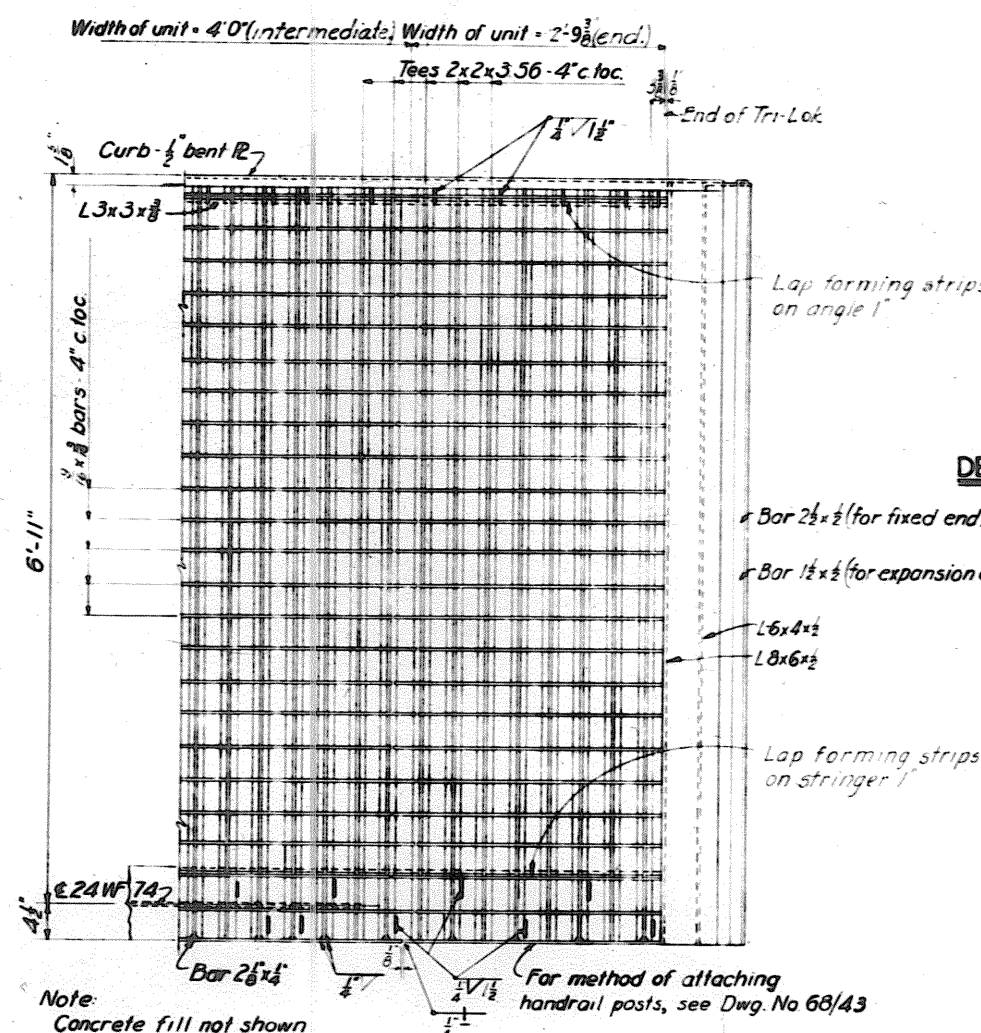 Width of unit = 4'0" (intermediate) Width of unit = 2'-9 3/8" (end.)
Tees 2x2x3.56 - 4" c. toc.
1/8"
End of Tri-Lok
1/4" 1 1/2"
Curb - 1/2" bent PL
L3x3x3/8
Lap forming strips
on angle 1"
bars - 4" c. toc.
6'-11"
DE
Bar 2 1/2 x 1/2 (for fixed end
Bar 1 1/2 x 1/2 (for expansion
L6x4x1/2
L8x6x1/2
Lap forming strips
on stringer 1"
℄ 24 WF 74
4 1/2"
Bar 2 1/8" x 1/4"
1/4"
1/8"
1/4 1 1/2
For method of attaching
handrail posts, see Dwg. No. 68/43
Note:
Concrete fill not shown